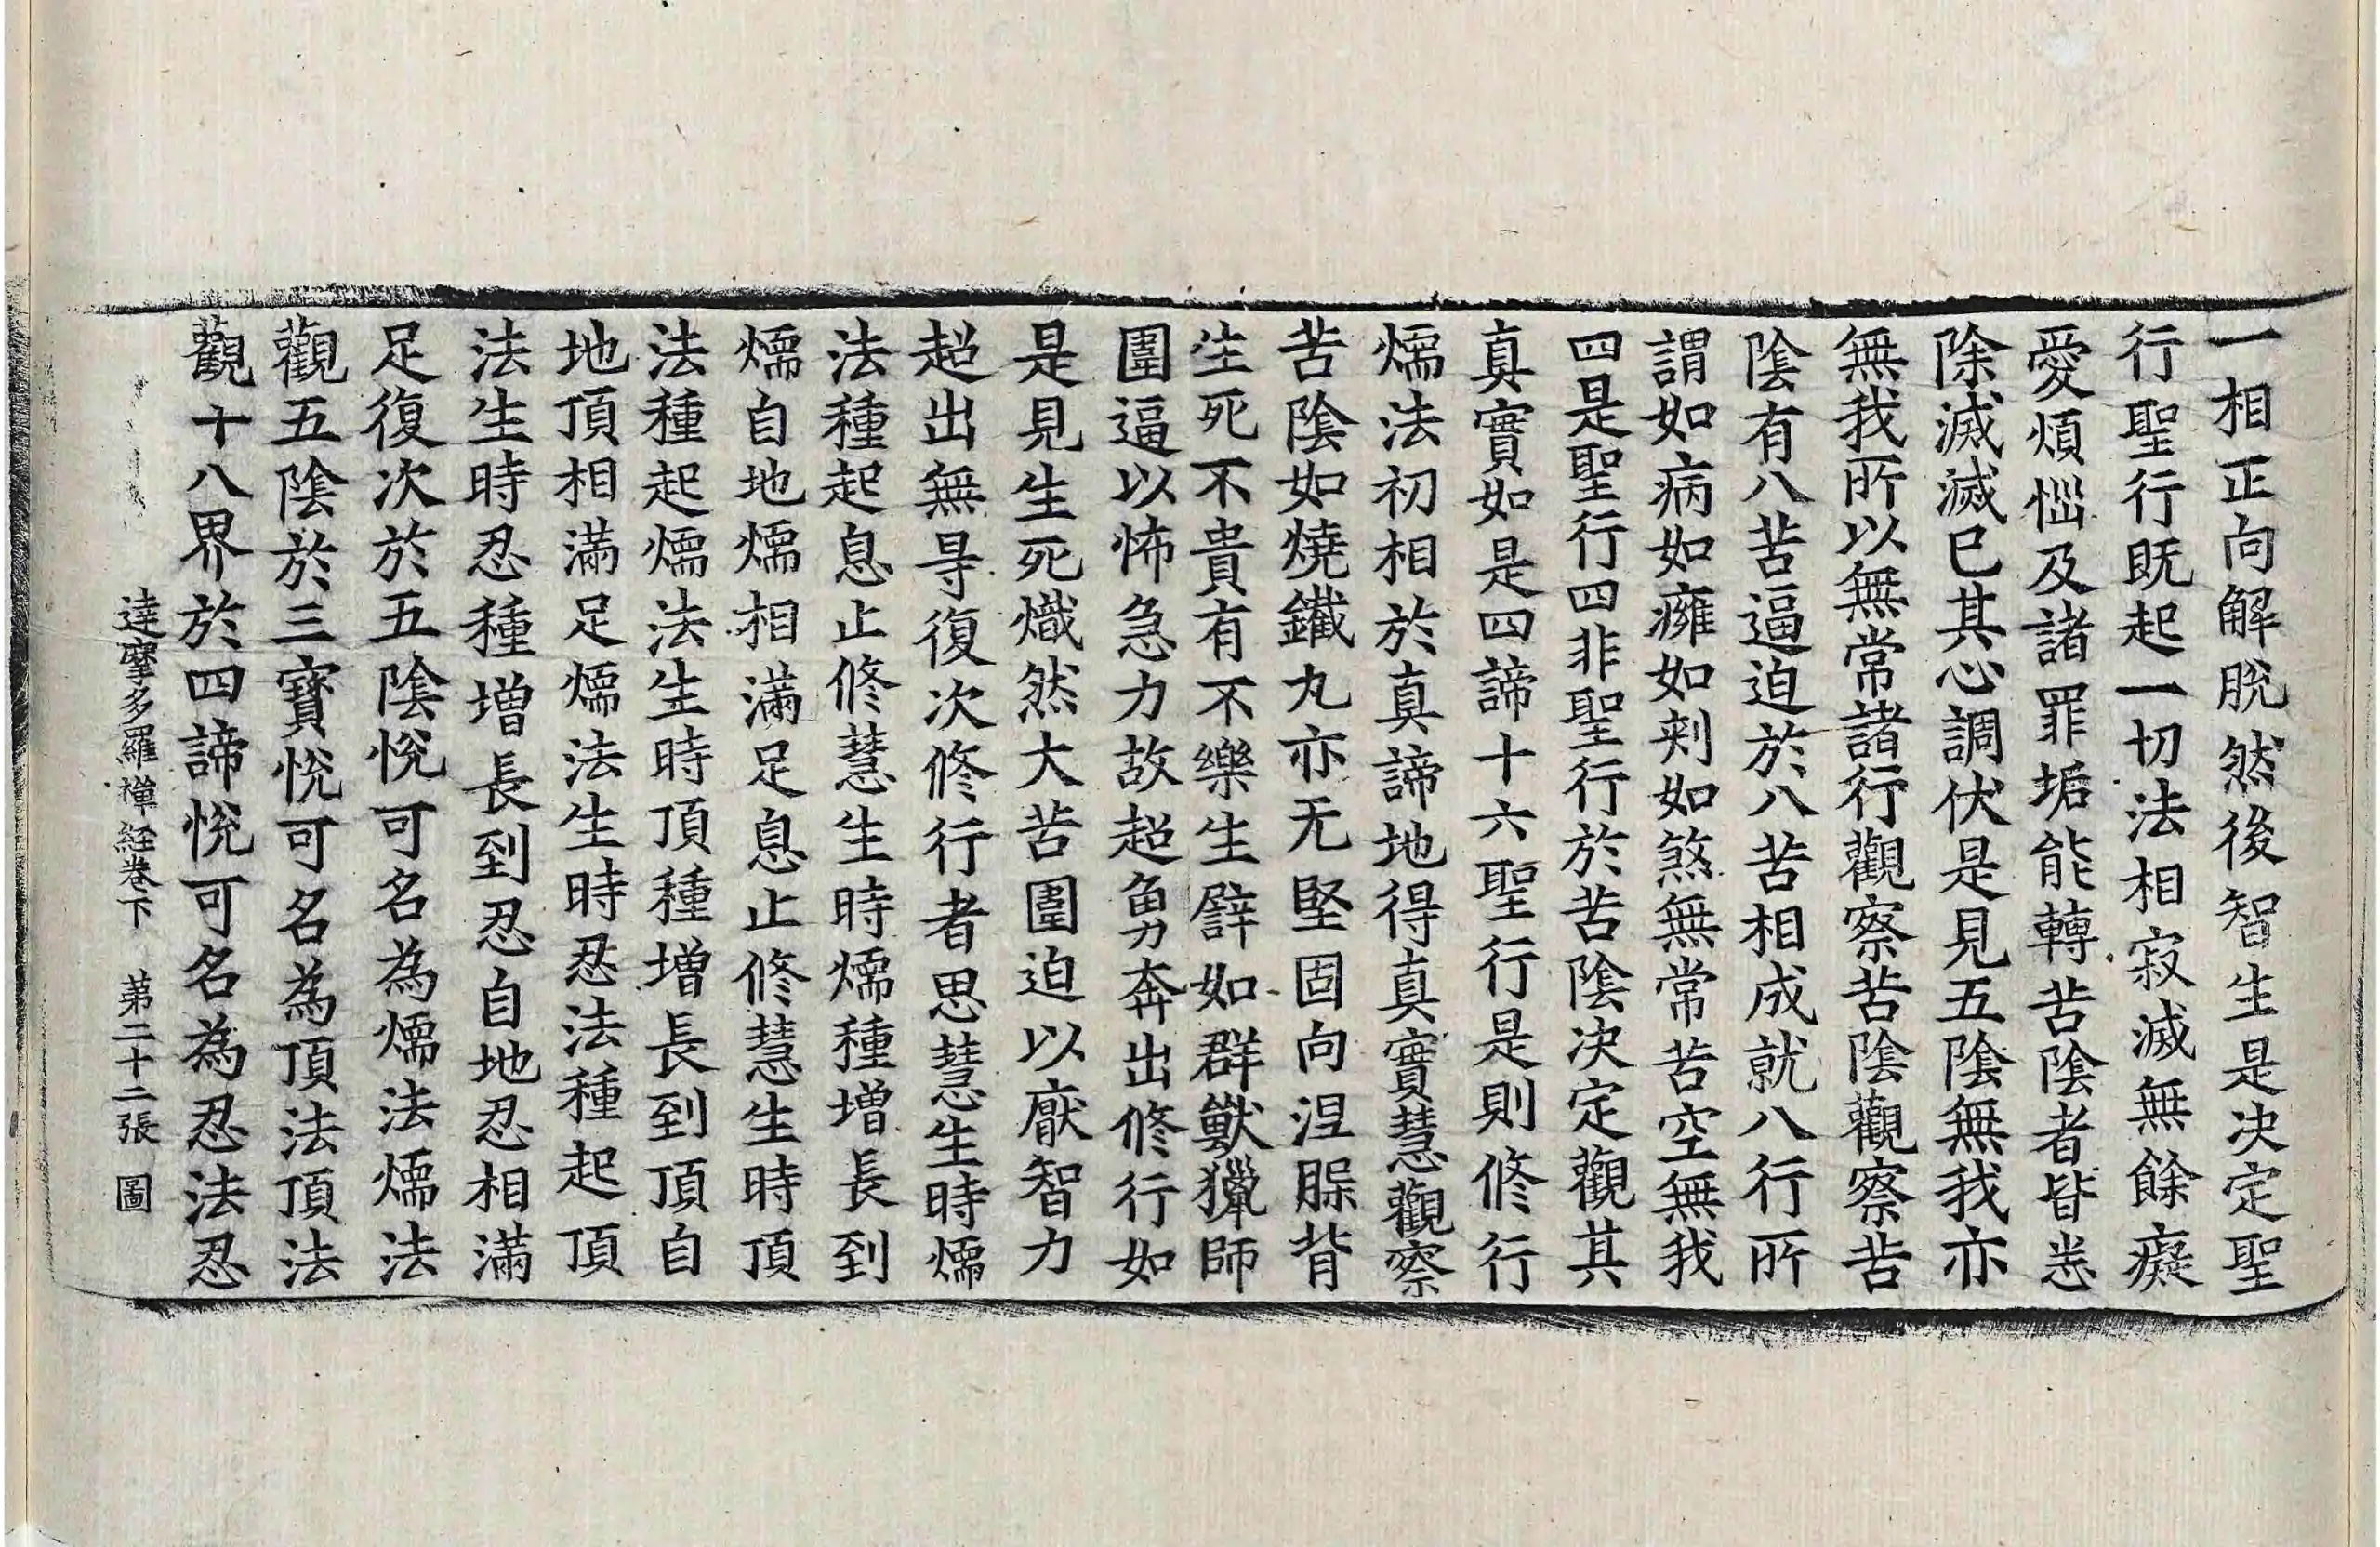 一相正向解脫然後智生是決定聖
行聖行既起一切法相寂滅無餘癡
愛煩惱及諸罪垢能轉苦陰者皆悉
除滅滅已其心調伏是見五陰無我亦
無我所以無常諸行觀察苦陰觀察苦
陰有八苦逼迫於八苦相成就八行所
謂如病如癰如刾如煞無常苦空無我
四是聖行四非聖行於苦陰決定觀其
真實如是四諦十六聖行是則修行
燸法初相於真諦地得真實慧觀察
苦陰如燒鐵丸亦无堅固向涅脲背
生死不貴有不樂生譬如群獸獵師
圍逼以怖急力故超勇奔出修行如
是見生死熾然大苦圍迫以厭智力
超出無㝵復次修行者思慧生時燸
法種起息止修慧生時燸種增長到
燸自地燸相滿足息止修慧生時頂
法種起燸法生時頂種增長到頂自
地頂相滿足燸法生時忍法種起頂
法生時忍種增長到忍自地忍相滿
足復次於五陰悅可名為燸法燸法
觀五陰於三寶悅可名為頂法頂法
觀十八界於四諦悅可名為忍法忍
達摩多羅禪経卷下 第二十二張 圖